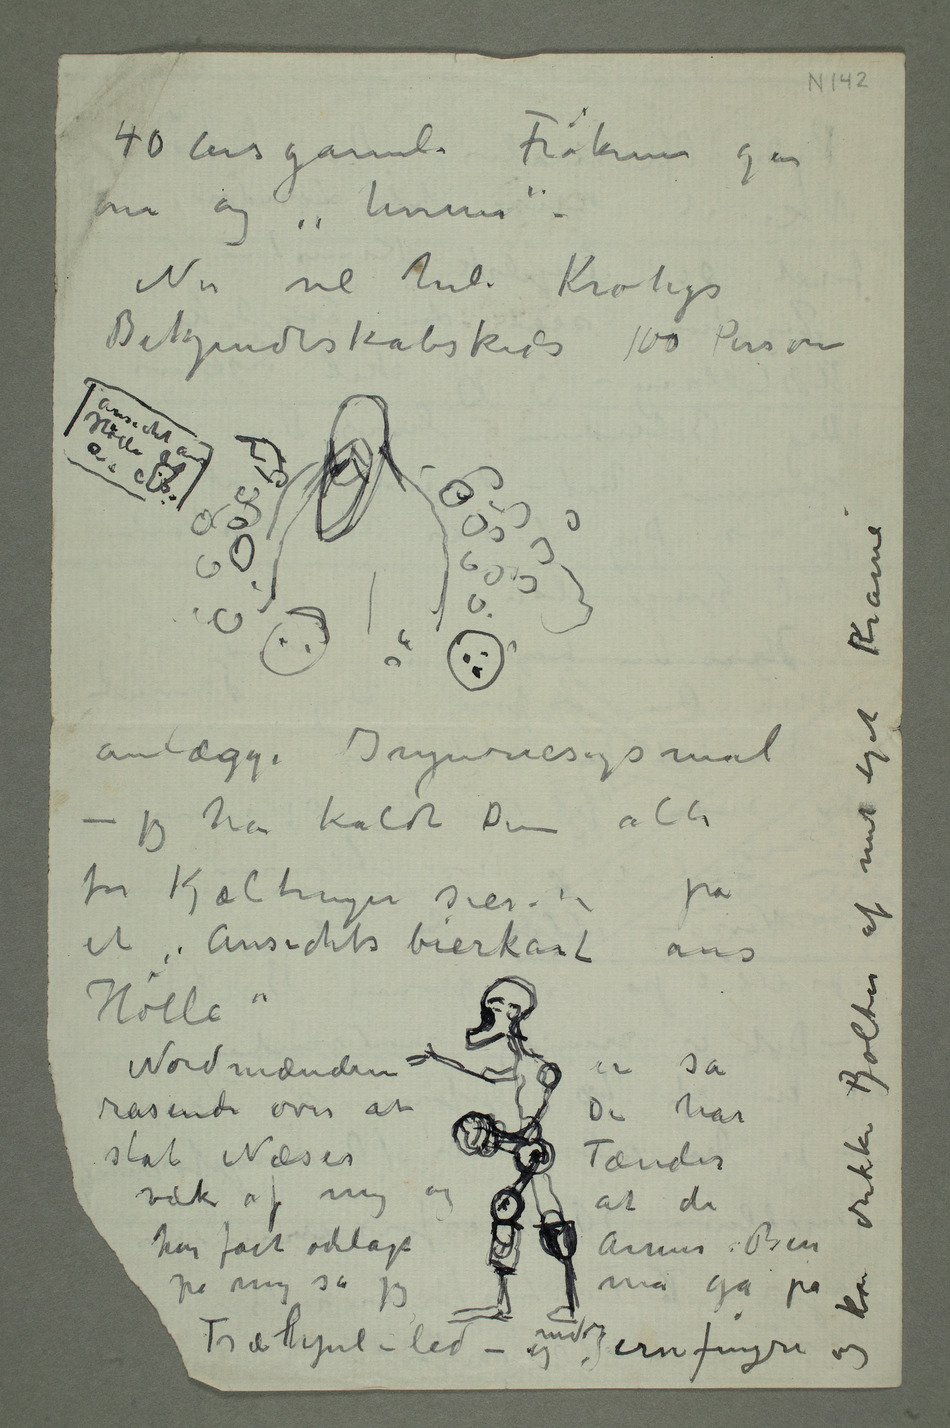 N 142
40 års gamle Frøkner går
om og „hviner" –
Nu vil hele Krohgs
Bekjendtskabskreds 100 Person
Ansicht aus
Hölle
anlægge Injuriesøgsmål
– jeg har kaldt Dem alle
for Kjæltringer sier de på
et „Ansichtsbierkart aus
Hölle"
Nordmændene er så
rasende over at De har
slåt Næser Tænder
væk af mig og at de
har fåt ødelagt Arme Ben
på mig så jeg må gå på
Træhjul-led – og med Jernfingre
og kan drikke Pjolter af mit eget Kranie